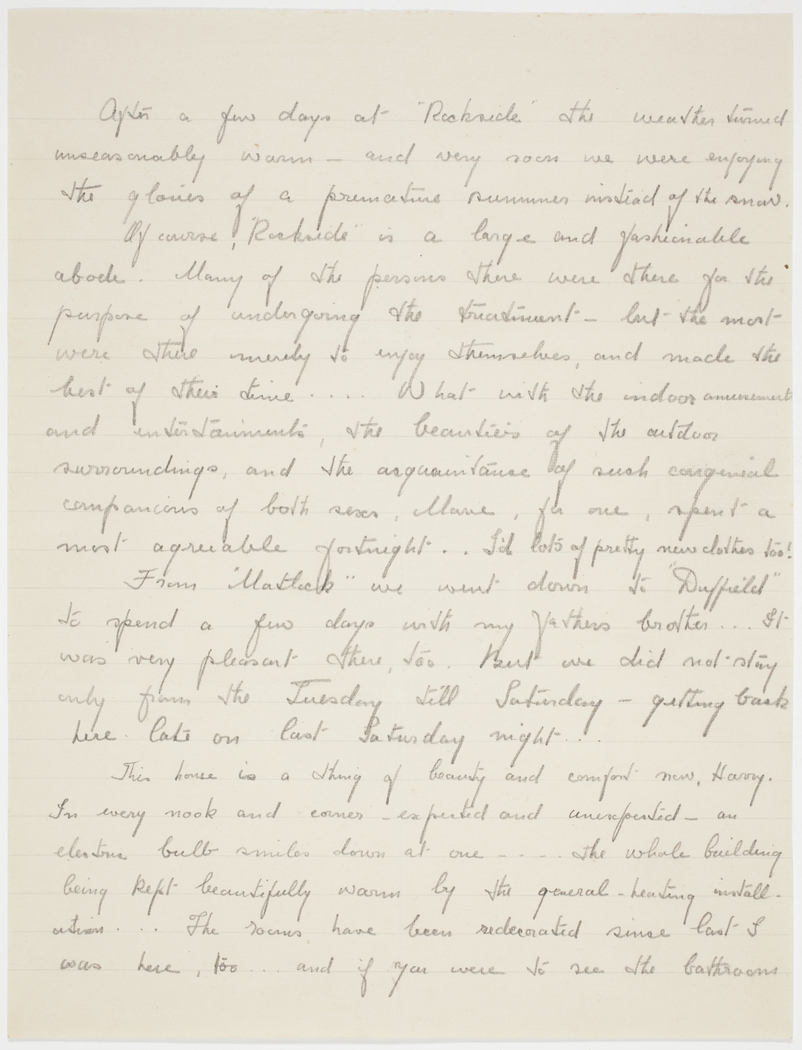 After a few days at "Rockside" the weather turned
unseasonably warm - and very soon we were enjoying
the glories of a premature summer instead of the snow.
Of course, "Rockside" is a large and fashionable
abode. Many of the persons there were there for the
purpose of undergoing the treatment - but the most
were there merely to enjoy themselves, and made the
best of their time .... What with the indoor amusements
and entertainments, the beauties of the outdoor
surroundings, and the acquaintance of such congenial
companions of both sexes, Marie, for one, spent a
most agreeable fortnight .. I'd lots of pretty new clothes too!
From "Matlock" we went down to "Duffield"
to spend a few days with my fathers brother ... It
was very pleasant there, too. But we did not stay
only from the Tuesday till Saturday - getting back
here late on last Saturday night ...
This house is a thing of beauty and comfort now, Harry.
In every nook and corner - expected and unexpected - an
electric bulb smiles down at one - ... the whole building
being kept beautifully warm by the general-heating install-
ation ... The rooms have been redecorated since last I
was here, too ... and if you were to see the bathrooms